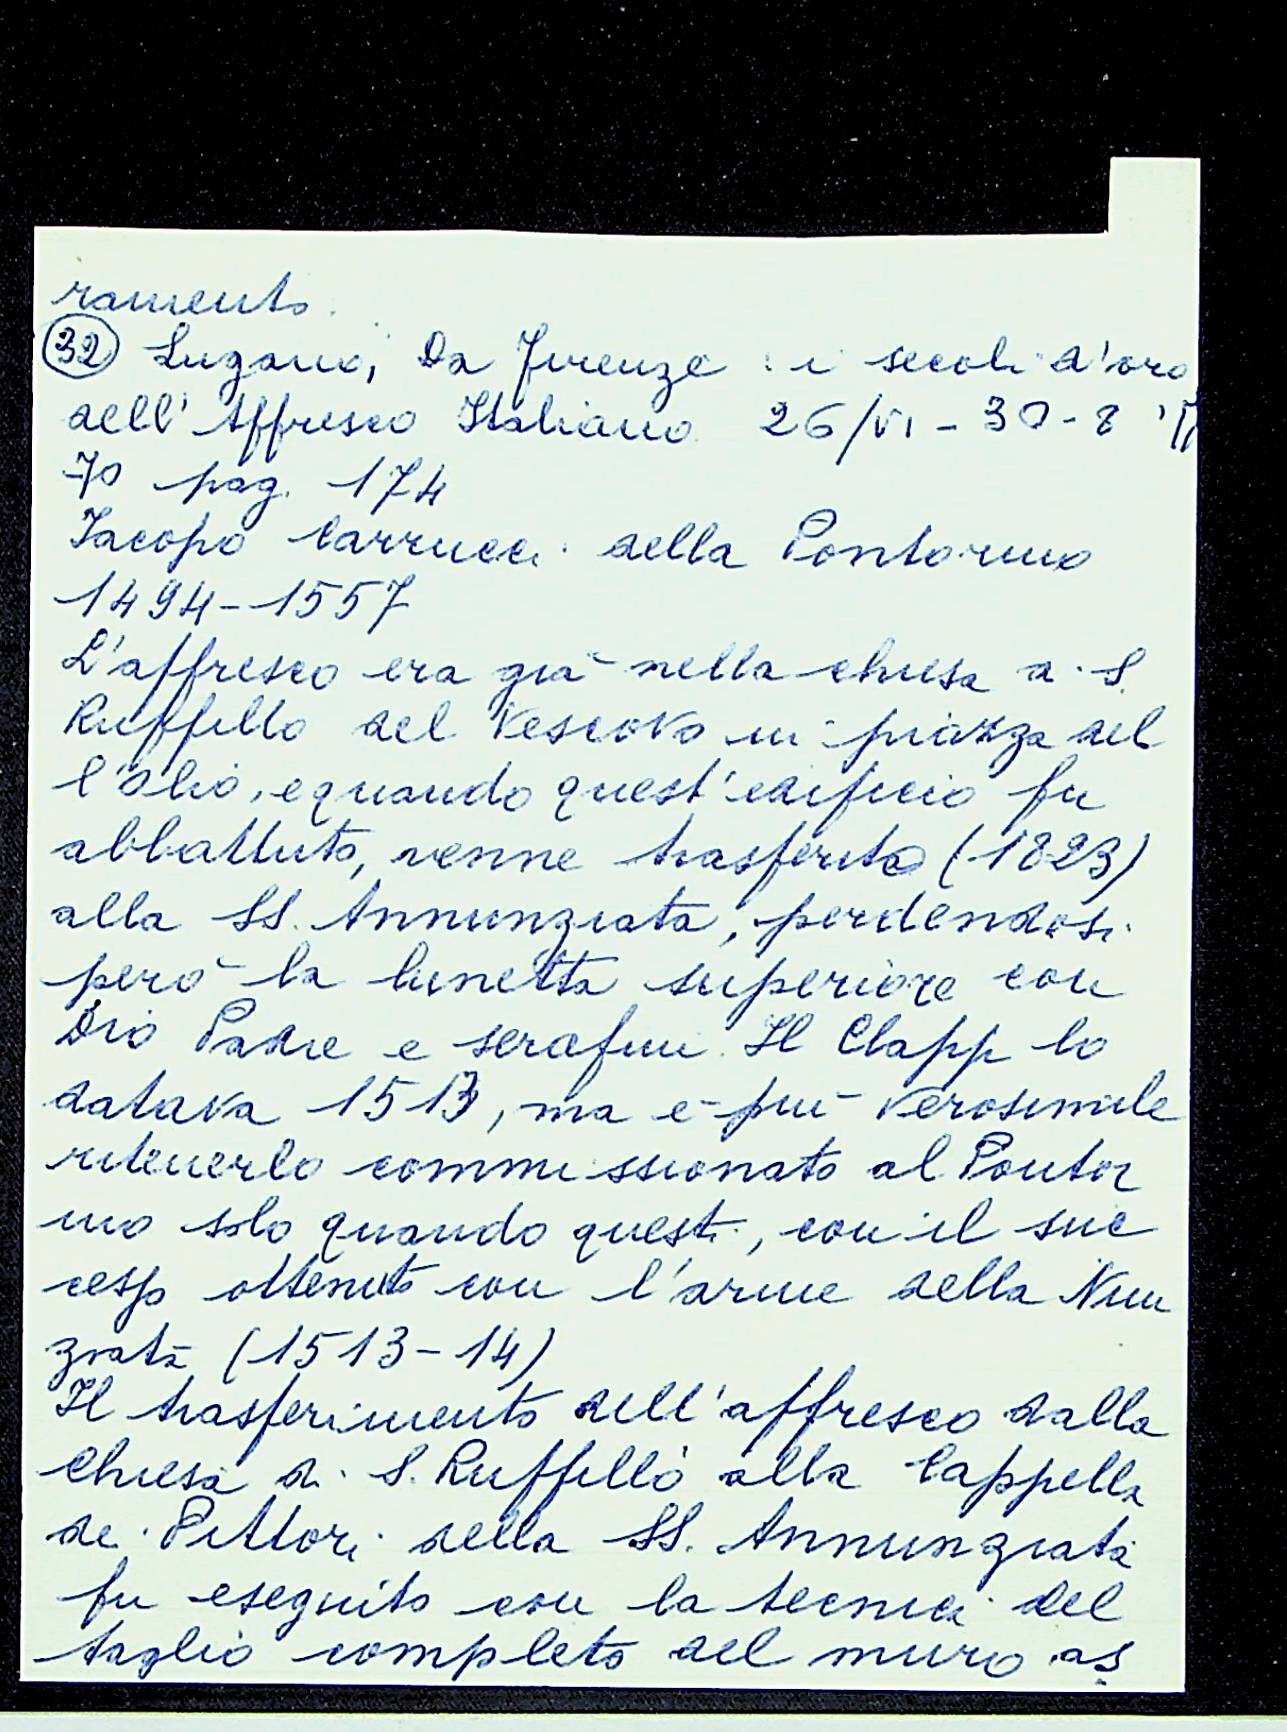 ramento.
32 Lugano, Da Firenze : i secoli d'oro
dell'Affresco Italiano 26/VI - 30-8 '17
70 pag. 174
Iacopo Carrucci della Pontormo
1494-1557
L'affresco era già nella chiesa di S.
Ruffillo del Vescovo in piazza del
l'Olio, e quando quest'edificio fu
abbattuto, venne trasferito (1823)
alla SS. Annunziata, perdendosi
però la lunetta superiore con
Dio Padre e serafini. Il Clapp lo
datava 1513, ma è più verosimile
ritenerlo commissionato al Pontor
mo solo quando questi, con il suc
cesso ottenuto con l'arme della Nun
ziata (1513-14)
Il trasferimento dell'affresco dalla
Chiesa di S. Ruffillo alla Cappella
dei Pittori della SS. Annunziata
fu eseguito con la tecnica del
taglio completo del muro as